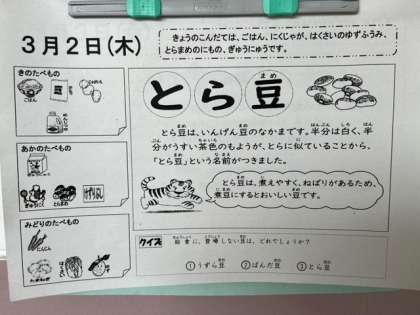 3月2日(木)
きょうのこんだては、ごはん、にくじゃが、はくさいのゆずふうみ、
とらまめのにもの、ぎゅうにゅうです。
きのたべもの
ごはん
あかのたべもの
ぎゅうにく
とらまめ
みどりのたべもの
にんじん
たまねぎ
とら豆
まめ
とら豆は、いんげん豆のなかまです。半分は白く、半
分がうすい茶色のもようが、とらに似ていることから、
「とら豆」という名前がつきました。
とら豆は、煮えやすく、ねばりがあるため、
煮豆にするとおいしい豆です。
クイズ 給食に、登場しない豆は、どれでしょうか?
①うずら豆 ②ぱんだ豆 ③とら豆